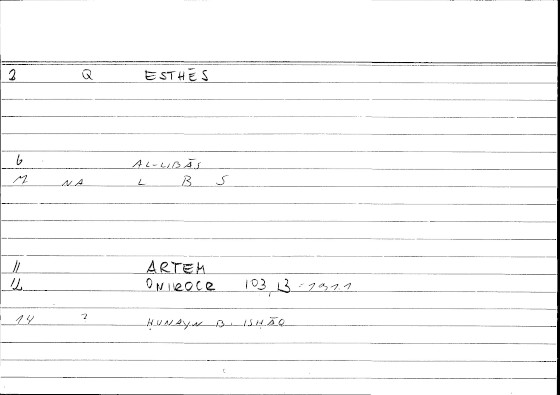 3 Q ESTHĒS
6 AL-LIBĀS
M NA L B S
11 ARTEM
12 ONIROCR 103,13 =
14 2 ḤUNAYN B. ISḤĀQ